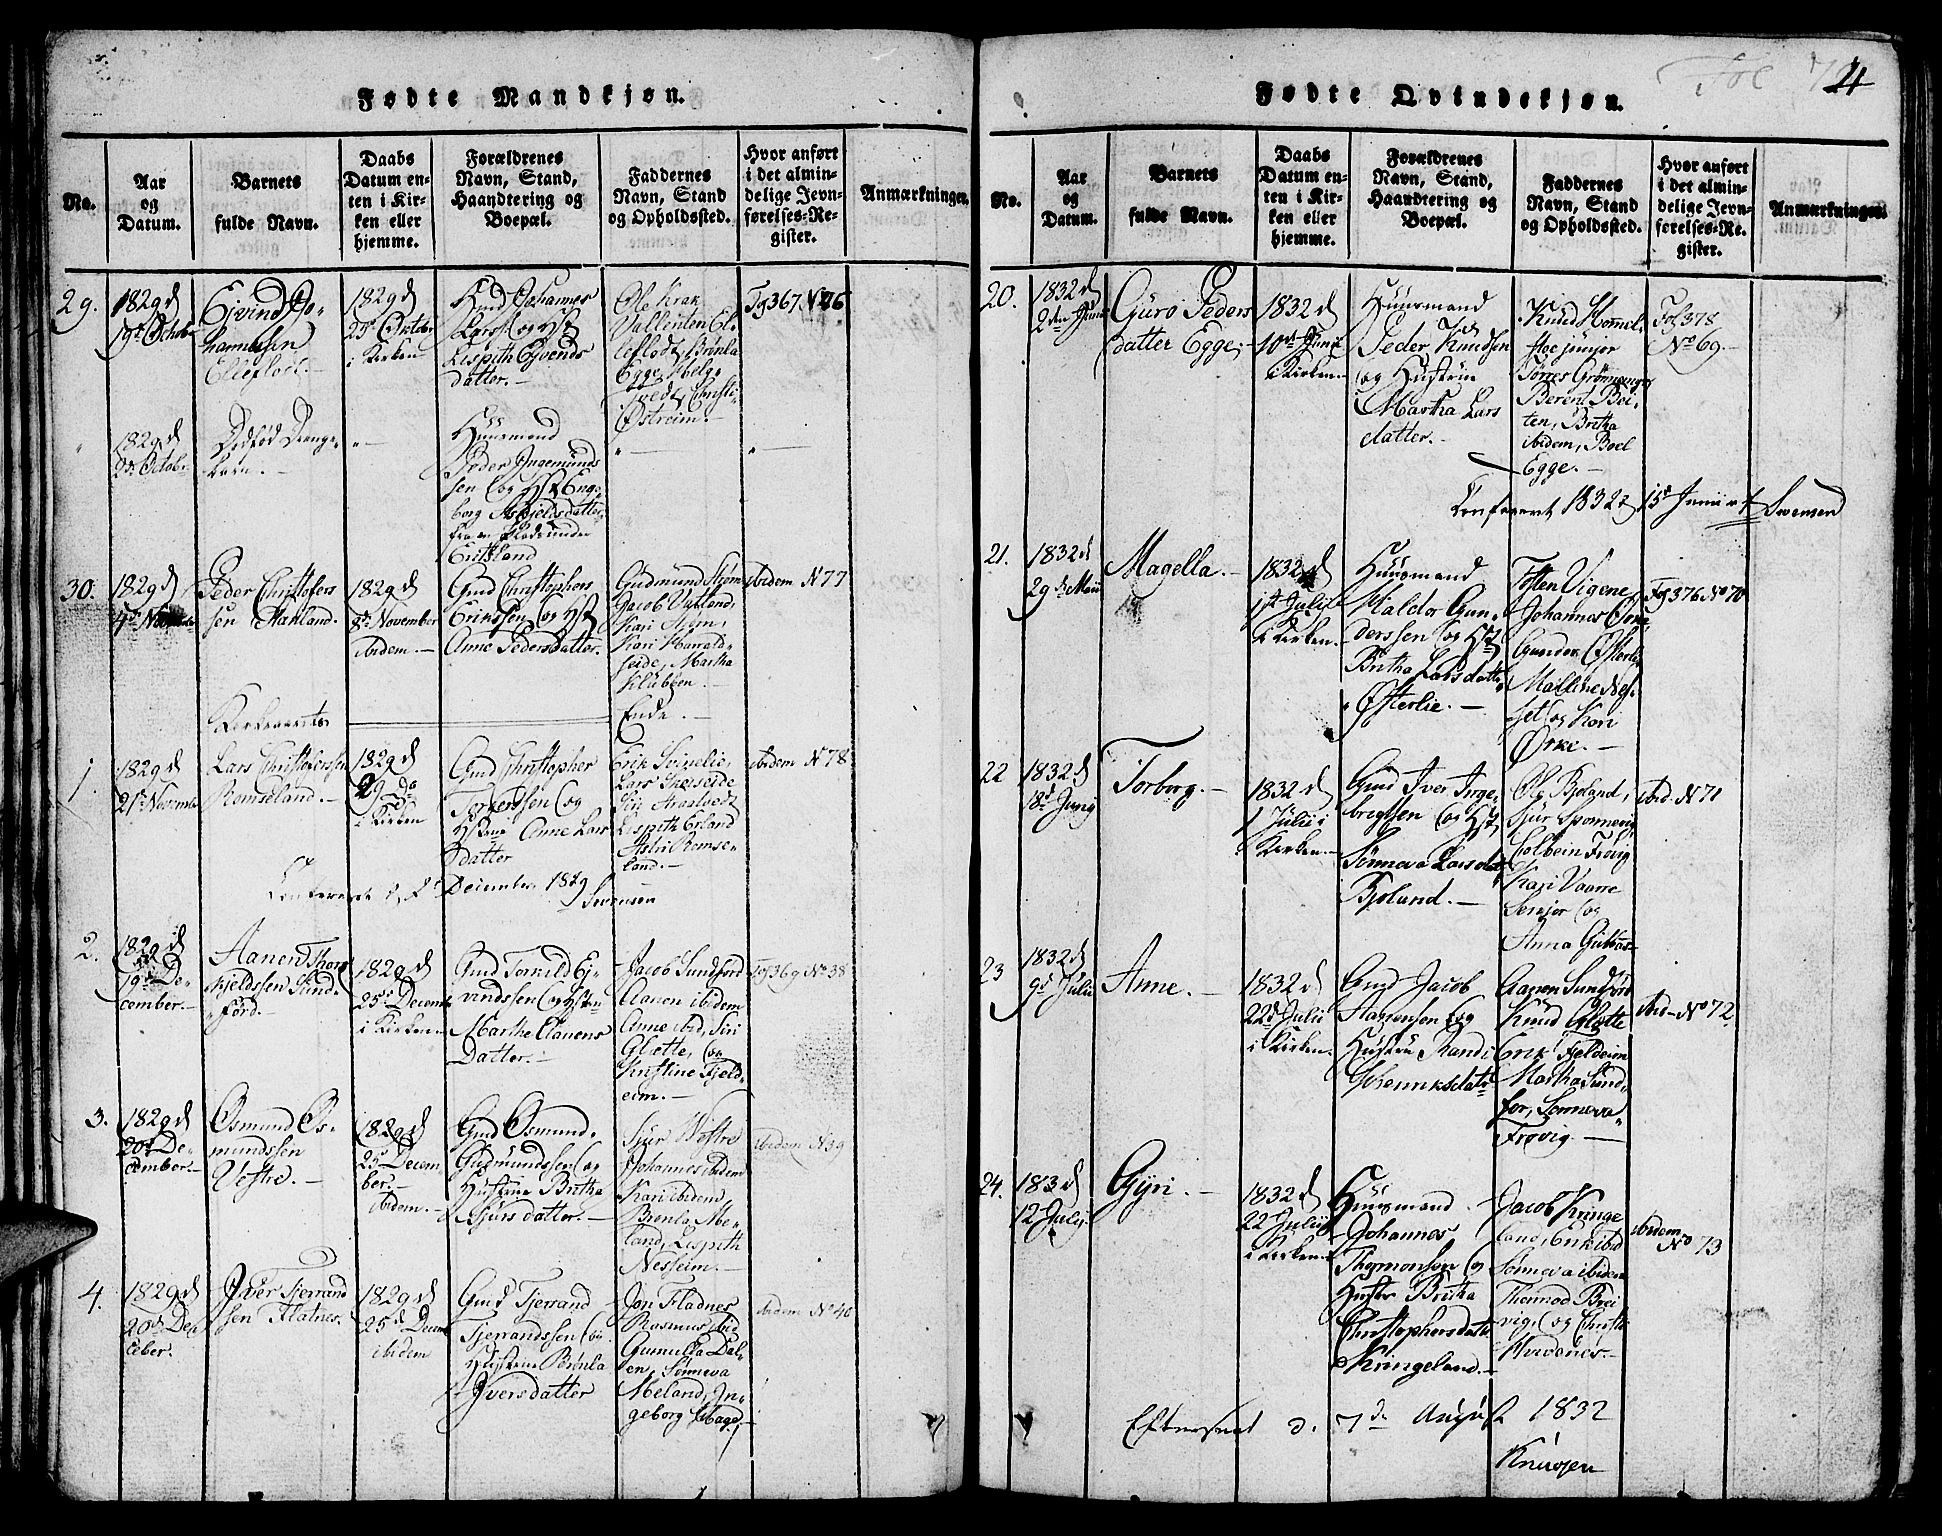 Fødte Mandkjøn.
No.
Aar
og
Datum.
Barnets
fulde Navn.
Daabs
Datum en-
ten i Kir-
ken eller
hjemme.
Forældrenes
Navn, Stand,
Haandtering og
Boepæl.
Faddernes
Navn, Stand
og Opholdssted.
Hvor anført
i det almin-
delige Jevn-
førelses-Re-
gister.
Anmærkninger.
29.
1829 d
19de Octobr
Ejvind Jo-
hannessen
Elleflodt.
1829 d
25de Octobr
i Kirken
Gmd Johannes
Larss. og Hst
Lispith Ejvends
datter.
Ole Krak
Vallenten El-
leflodt, Brønla
Egge, Helge
Tvedt, Christi
Østreim.
Fo 367 N 76
1829 d
Octobr
Dødfød Drenge-
barn.
Huusmand
Peder Ingemunds
sen og Hst Enge-
borg Askjeldsdatter
1829 d
Peder Christofers
sen Haaland.
30.
1829 d
8de November
ibidem.
Gmd Christopher
Erikssen og Hst
Anne Pedersdatter.
Gudmund Strøm
Jacob Vatland,
Kari Strøm,
Kari Harrald-
seide, Martha
Klubben.
ibidem N 77
Ende.
1.
1829 d
21de Novembr
Lars Christofersen
Romseland.
1829 d
29 do
i Kirken
Gmd Christopher
Torkerssen og
Hstrue Anne Lars
datter
Erik Svinelie,
Lars Skeiseide
Lispith Erland
Astri Romse-
land.
ibidem N 78
Confereret d. 2 December 1829
Svensen
2.
1829 d
19de De-
cember.
Aanen Thor-
kjeldssen Sund-
ford.
1829 d
25de Decemb
i Kirken
Gmd Torkild Ej-
vindssen og Hstrue
Marthe Aanens
Datter.
Jacob Sundford
Aanen ibidem
Anne ibid, Siri
Glette, og
Kristine Fjeld-
eim.
Fo 369 No 38
3.
1829 d
20de De-
cember.
Osmund Os-
mundssen
Vestre.
1829 d
25de Decem-
ber.
ibidem.
Gmd Osmund
Gudmundssen og
Hustrue Britha
Sjurs datter.
Sjur Vestre
Johannes ibidem
Kari ibidem
Brønla Me-
land, Lispith
Nesheim.
ibidem N 39
4.
1829 d
20de De-
ceber.
Iver Tjerrand
sen Flatnes.
1829 d
25de Decemb
ibidem
Gmd Tjerrand
Tjerrandssen og
Hustrue Brønla
Iversdatter
Jon Fladnes
Rasmus ibid
Gunnilla Dal-
en, Sønneva
Meland, In-
geborg Hage.
ibidem No 40
Fol 74
Fødte Qvindekjøn.
No.
Aar
og
Datum.
Barnets
fulde Navn.
Daabs
Datum en-
ten i Kir-
ken eller
hjemme.
Forældrenes
Navn, Stand,
Haandtering og
Boepæl.
Faddernes
Navn, Stand
og Opholdssted.
Hvor anført
i det almin-
delige Jevn-
førelses-Re-
gister.
Anmærkninger.
20.
1832 d
2den Juni
Guro Peders
datter Egge,
1832 d
10de Junii
i Kirken.
Huusmand
Peder Knudsen
og Hustrue
Martha Lars
datter.
Knud Hommel-
toe junior
Tørres Grønnevig
Berent Boe-
ten, Britha
ibidem, Boel
Egge.
Fol 378
No 69.
Confereret 1832 d 15de Junii
Svensen
21.
1832 d
29de Maii
Magella.
1832 d
1ste Julii
i Kirken.
Huusmand
Haldor Gun-
derssen og Hst
Britha Larsdatter
Østerlie.
Johannes Ørke
Gunder Østerlie
Malline
og Kari
Ørke.
Fo 376 No 70
22
1832 d
18de Junij
Torborg.
1832 d
1 Julii i
Kirken.
Gmd Iver Inge-
brigtsen og Hst
Sønneva Larsdatter
Bjoland.
Ole Bjoland,
Sjur Sponnevig
Colbein Frøvig
Kari Vaarre
Senior og
Anna
ibid. N 71
23
1832 d
9de Julii
Anne.
1832 d
22de Julii
i Kirken.
Gmd Jacob
Aanensen og
Hustrue Randi
Henriksdatr
Aanen Sundfør
Knud Glette
Erik Fjeldeim
Martha Sund-
for, Sønneva
Frøvig.
ibid. No 72.
24.
183 d
12 Julij
Gyri.
1832 d
22 Julij
i Kirken.
Huusmand
Johannes
Thormonsen og
Hustr Britha
Christophersdatter
Kringeland.
Jacob Kringe
land, Erik ibid
Sønneva ibidem
Thormod Brei
vig, og Christi
Hvidenes.
ibidem
No 73
Efterseet d. 7de August 1832
Knudsen